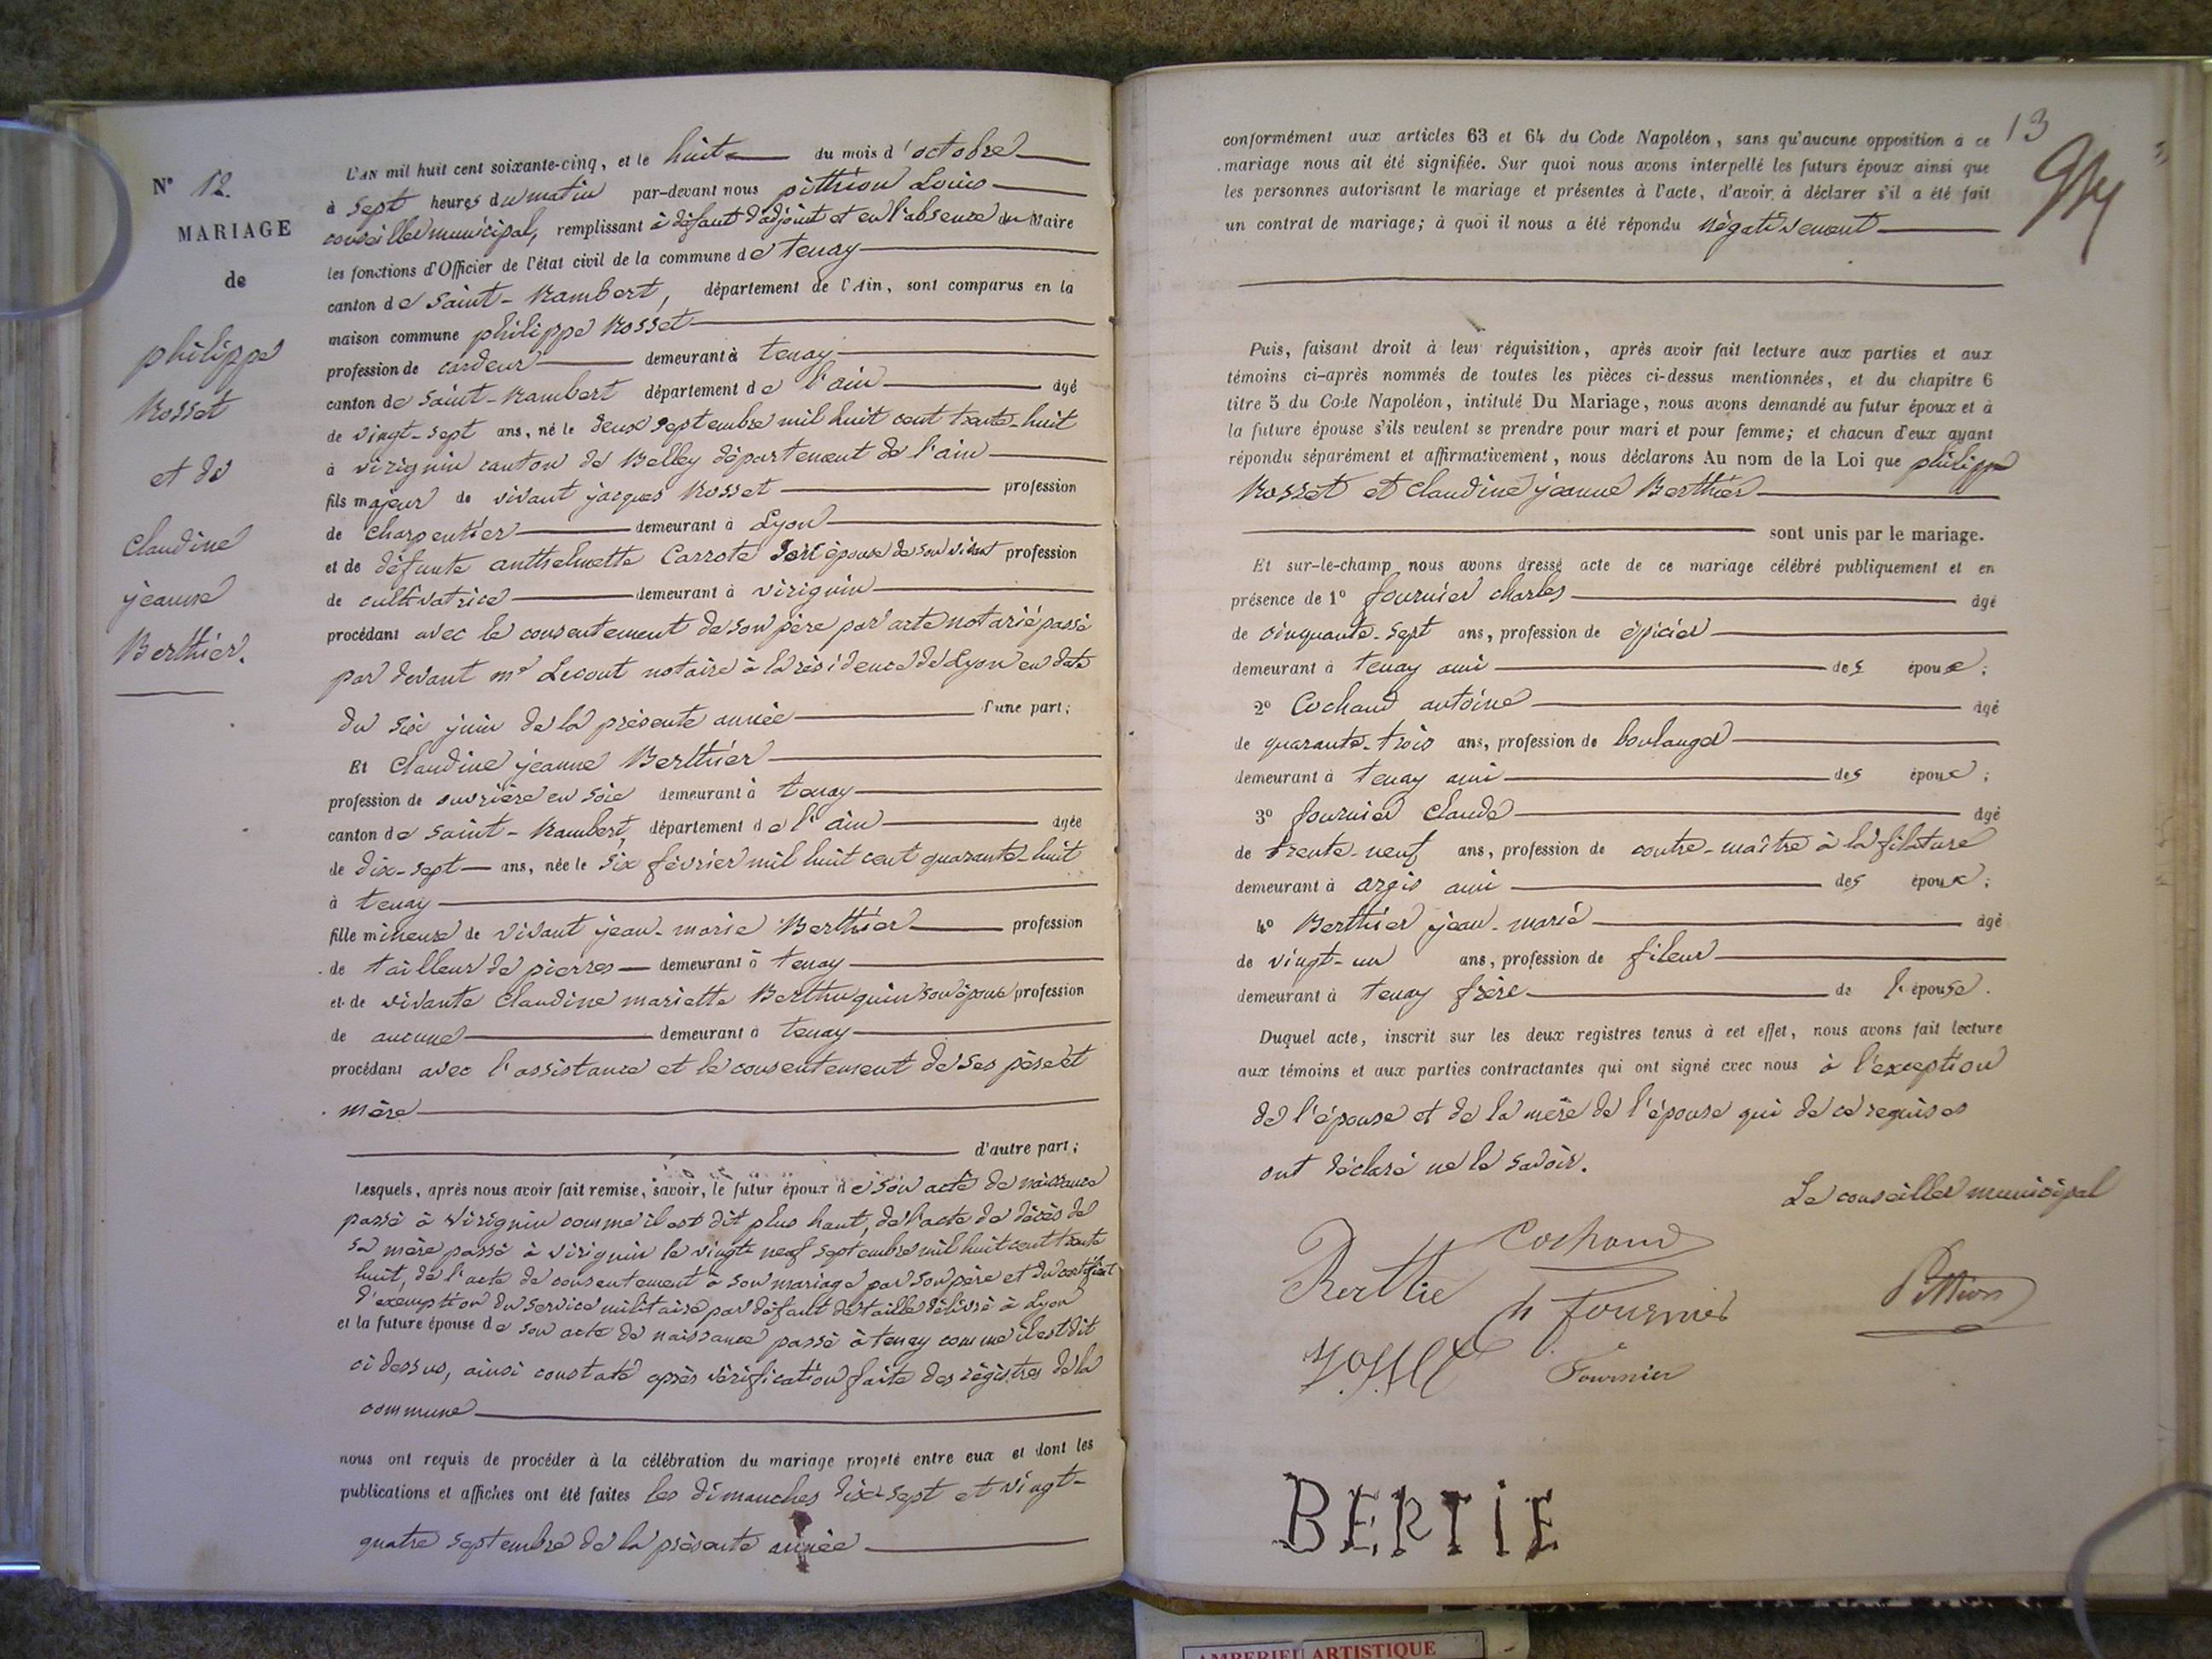 N° 12.
MARIAGE
de
philippe
Rosset
et de
Claudine
jeanne
Berthier.
L'AN mil huit cent soixante-cinq, et le huit du mois d'octobre
à sept heures du matin par-devant nous pitthion Louis
conseiller municipal, remplissant à défaut d'adjoint et en l'absence du Maire
les fonctions d'Officier de l'état civil de la commune de tenay
canton de Saint-Rambert, département de l'Ain, sont comparus en la
maison commune philippe Rosset
profession de cardeur demeurant à tenay
canton de Saint-Rambert département de l'ain âgé
de vingt-sept ans, né le deux septembre mil huit cent trente-huit
à virignin canton de Belley département de l'ain
fils majeur de vivant jacques Rosset profession
de charpentier demeurant à Lyon
et de défunte anthelmette Carrote son épouse de son vivant profession
de cultivatrice demeurant à virignin
procédant avec le consentement de son père par acte notarié passé
par devant me Lecout notaire à la résidence de Lyon en date
du six juin de la présente année d'une part;
Et Claudine jeanne Berthier
profession de ouvrière en soie demeurant à tenay
canton de Saint-Rambert, département de l'ain âgée
de dix-sept ans, née le six février mil huit cent quarante-huit
à tenay
fille mineure de vivant jean-marie Berthier profession
de tailleur de pierres demeurant à tenay
et de vivante Claudine mariette Berthuquin son épouse profession
de aucune demeurant à tenay
procédant avec l'assistance et le consentement de ses père et
mère
d'autre part;
Lesquels, après nous avoir fait remise, savoir, le futur époux de son acte de naissance
passé à virignin comme il est dit plus haut, de l'acte de décès de
sa mère passé à virignin le vingt neuf septembre mil huit cent trente
huit, de l'acte de consentement à son mariage par son père et du certificat
d'exemption du service militaire par défaut de taille délivré à Lyon
et la future épouse de son acte de naissance passé à tenay comme il est dit
ci dessus, ainsi constaté après vérification faite des régistres de la
commune
nous ont requis de procéder à la célébration du mariage projeté entre eux et dont les
publications et affiches ont été faites les dimanches dix-sept et vingt-
quatre septembre de la présente année
13
conformément aux articles 63 et 64 du Code Napoléon, sans qu'aucune opposition à ce
mariage nous ait été signifiée. Sur quoi nous avons interpellé les futurs époux ainsi que
les personnes autorisant le mariage et présentes à l'acte, d'avoir à déclarer s'il a été fait
un contrat de mariage; à quoi il nous a été répondu négativement
Puis, faisant droit à leur réquisition, après avoir fait lecture aux parties et aux
témoins ci-après nommés de toutes les pièces ci-dessus mentionnées, et du chapitre 6
titre 5 du Code Napoléon, intitulé Du Mariage, nous avons demandé au futur époux et à
la future épouse s'ils veulent se prendre pour mari et pour femme; et chacun d'eux ayant
répondu séparément et affirmativement, nous déclarons Au nom de la Loi que philippe
Rosset et Claudine jeanne Berthier
sont unis par le mariage.
Et sur-le-champ nous avons dressé acte de ce mariage célébré publiquement et en
présence de 1° fournier charles âgé
de cinquante-sept ans, profession de épicier
demeurant à tenay ami des époux;
2° Cochand antoine âgé
de quarante-trois ans, profession de boulanger
demeurant à tenay ami des époux;
3° fournier claude âgé
de trente-neuf ans, profession de contre-maître à la filature
demeurant à argis ami des époux;
4° Berthier jean-marie âgé
de vingt-un ans, profession de fileur
demeurant à tenay frère de l'épouse.
Duquel acte, inscrit sur les deux registres tenus à cet effet, nous avons fait lecture
aux témoins et aux parties contractantes qui ont signé avec nous à l'exception
de l'épouse et de la mère de l'épouse qui de ce requises
ont déclaré ne le savoir.
Le conseiller municipal
Cochand
Berthie
Pitthion
h fournier
Rosset
Fournier
BERTIE
AMBERIEU ARTISTIQUE